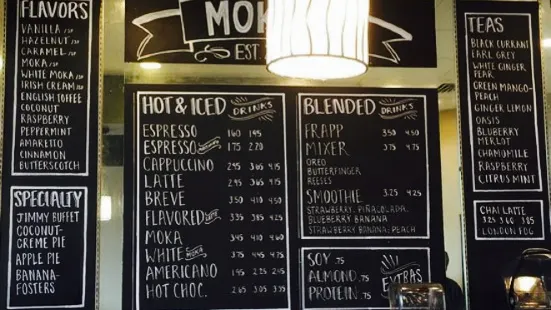 FLAVORS
VANILLA
HAZELNUT
CARAMEL
MOKA
WHITE MOKA
IRISH CREAM
ENGLISH TOFFEE
COCONUT
RASPBERRY
PEPPERMINT
AMARETTO
CINNAMON
BUTTERSCOTCH
SPECIALTY
JIMMY BUFFET
COCONUT-
CREME PIE
APPLE PIE
BANANA-
FOSTERS
MOK
EST.
HOT & ICED DRINKS
ESPRESSO 1.60 1.95
ESPRESSO 1.75 2.20
CAPPUCCINO 2.95 3.65 4.15
LATTE 2.95 3.65 4.15
BREVE 3.50 4.10 4.50
FLAVORED LATTE 3.35 3.85 4.25
MOKA 3.45 4.10 4.60
WHITE MOKA 3.75 4.45 4.75
AMERICANO 1.95 2.25 2.45
HOT CHOC. 2.65 3.05 3.35
BLENDED DRINKS
FRAPP 3.50 4.50
MIXER 3.75 4.75
OREO
BUTTERFINGER
REESES
SMOOTHIE 3.25 4.25
STRAWBERRY, PIÑA COLADA,
BLUEBERRY BANANA
STRAWBERRY BANANA, PEACH
SOY .75
ALMOND .75
PROTEIN .75
EXTRAS
TEAS
BLACK CURRANT
EARL GREY
WHITE GINGER
PEAR
GREEN MANGO-
PEACH
GINGER LEMON
OASIS
BLUEBERRY
MERLOT
CHAMOMILE
RASPBERRY
CITRUS MINT
CHAI LATTE
3.25 3.60 3.85
LONDON FOG